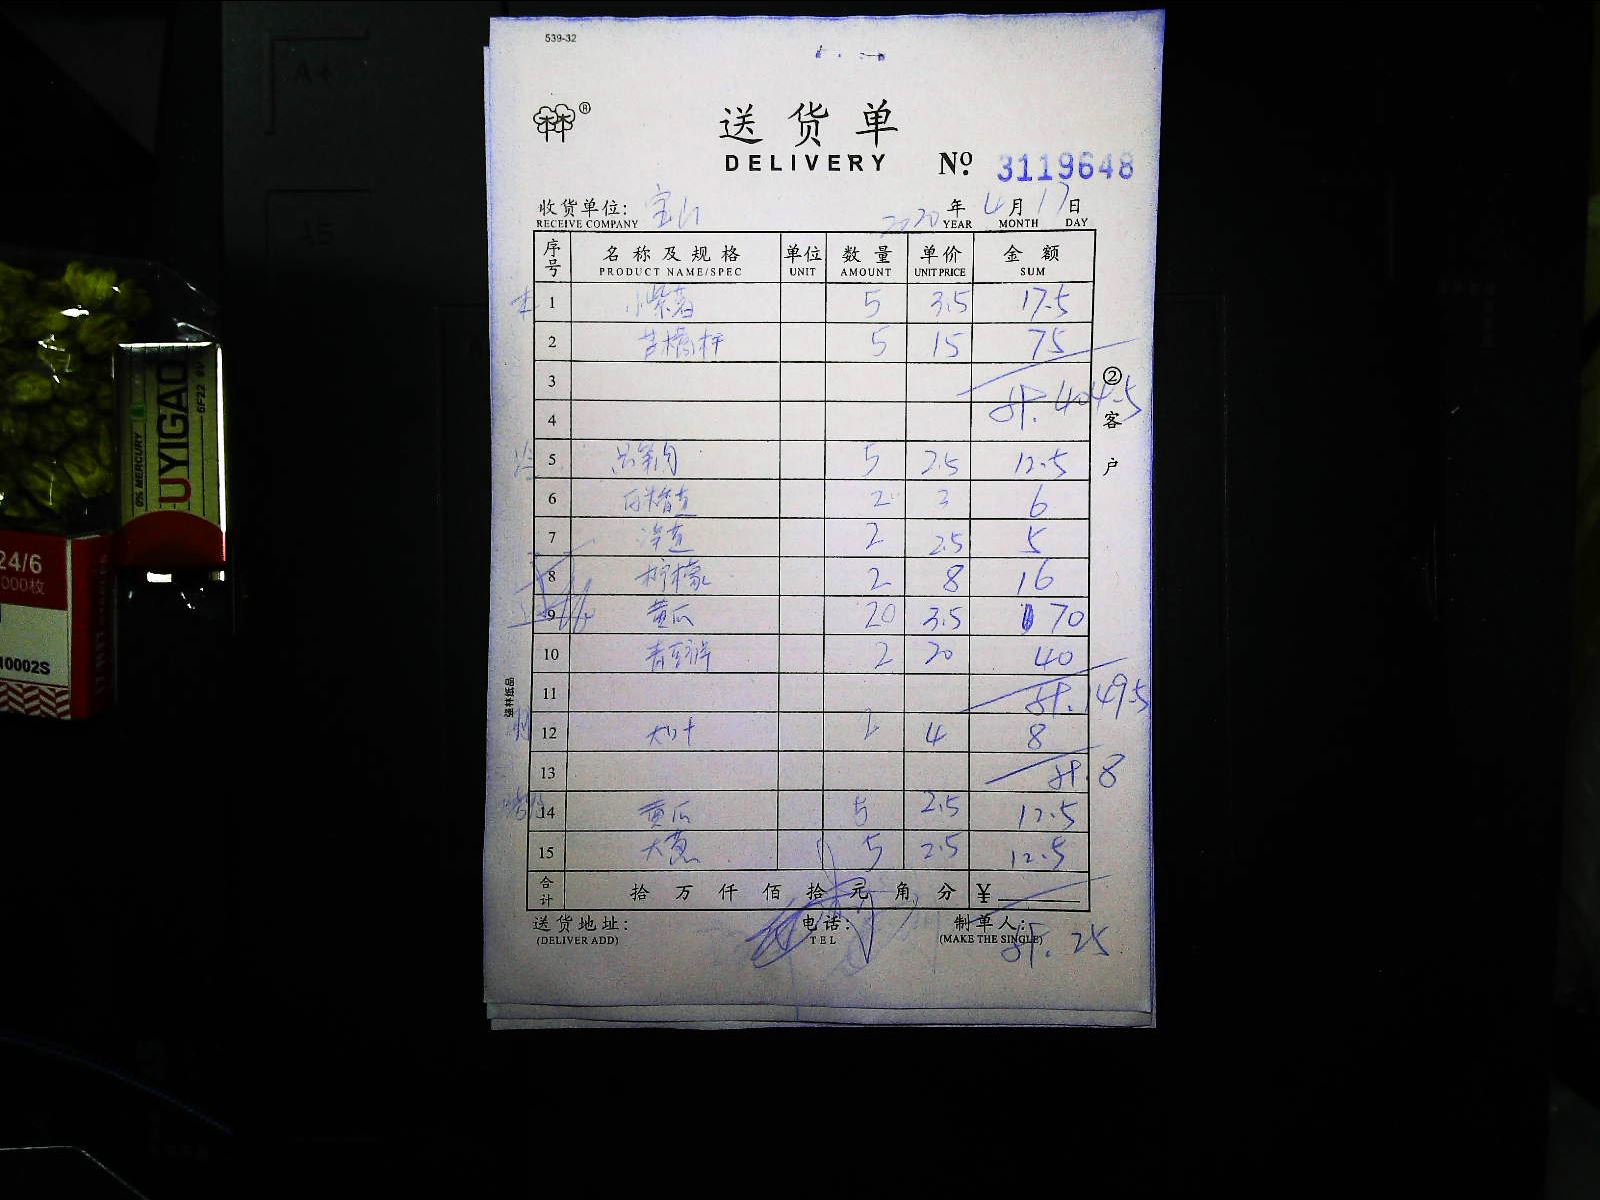 539-32
®
送货单
DELIVERY № 3119648
收货单位: 宝山 2020 年 4 月 17 日
RECEIVE COMPANY YEAR MONTH DAY
序号 名称及规格 单位 数量 单价 金额
PRODUCT NAME/SPEC UNIT AMOUNT UNIT PRICE SUM
1 小紫薯 5 3.5 17.5
2 5 15 75
3
4 计. 404.5
5 5 2.5 12.5
6 2 3 6
7 2 2.5 5
8 柠檬 2 8 16
9 黄瓜 20 3.5 70
10 2 20 40
11 计. 149.5
12 大叶 2 4 8
13 计. 8
14 黄瓜 5 2.5 12.5
15 大葱 5 2.5 12.5
合计 拾 万 仟 佰 拾 元 角 分 ¥
送货地址: 电话: 制单人:
(DELIVER ADD) TEL (MAKE THE SINGLE)
计. 25
②客户
强林纸品
0% MERCURY
UYIGAO
6F22 9V
24/6
000枚
10002S